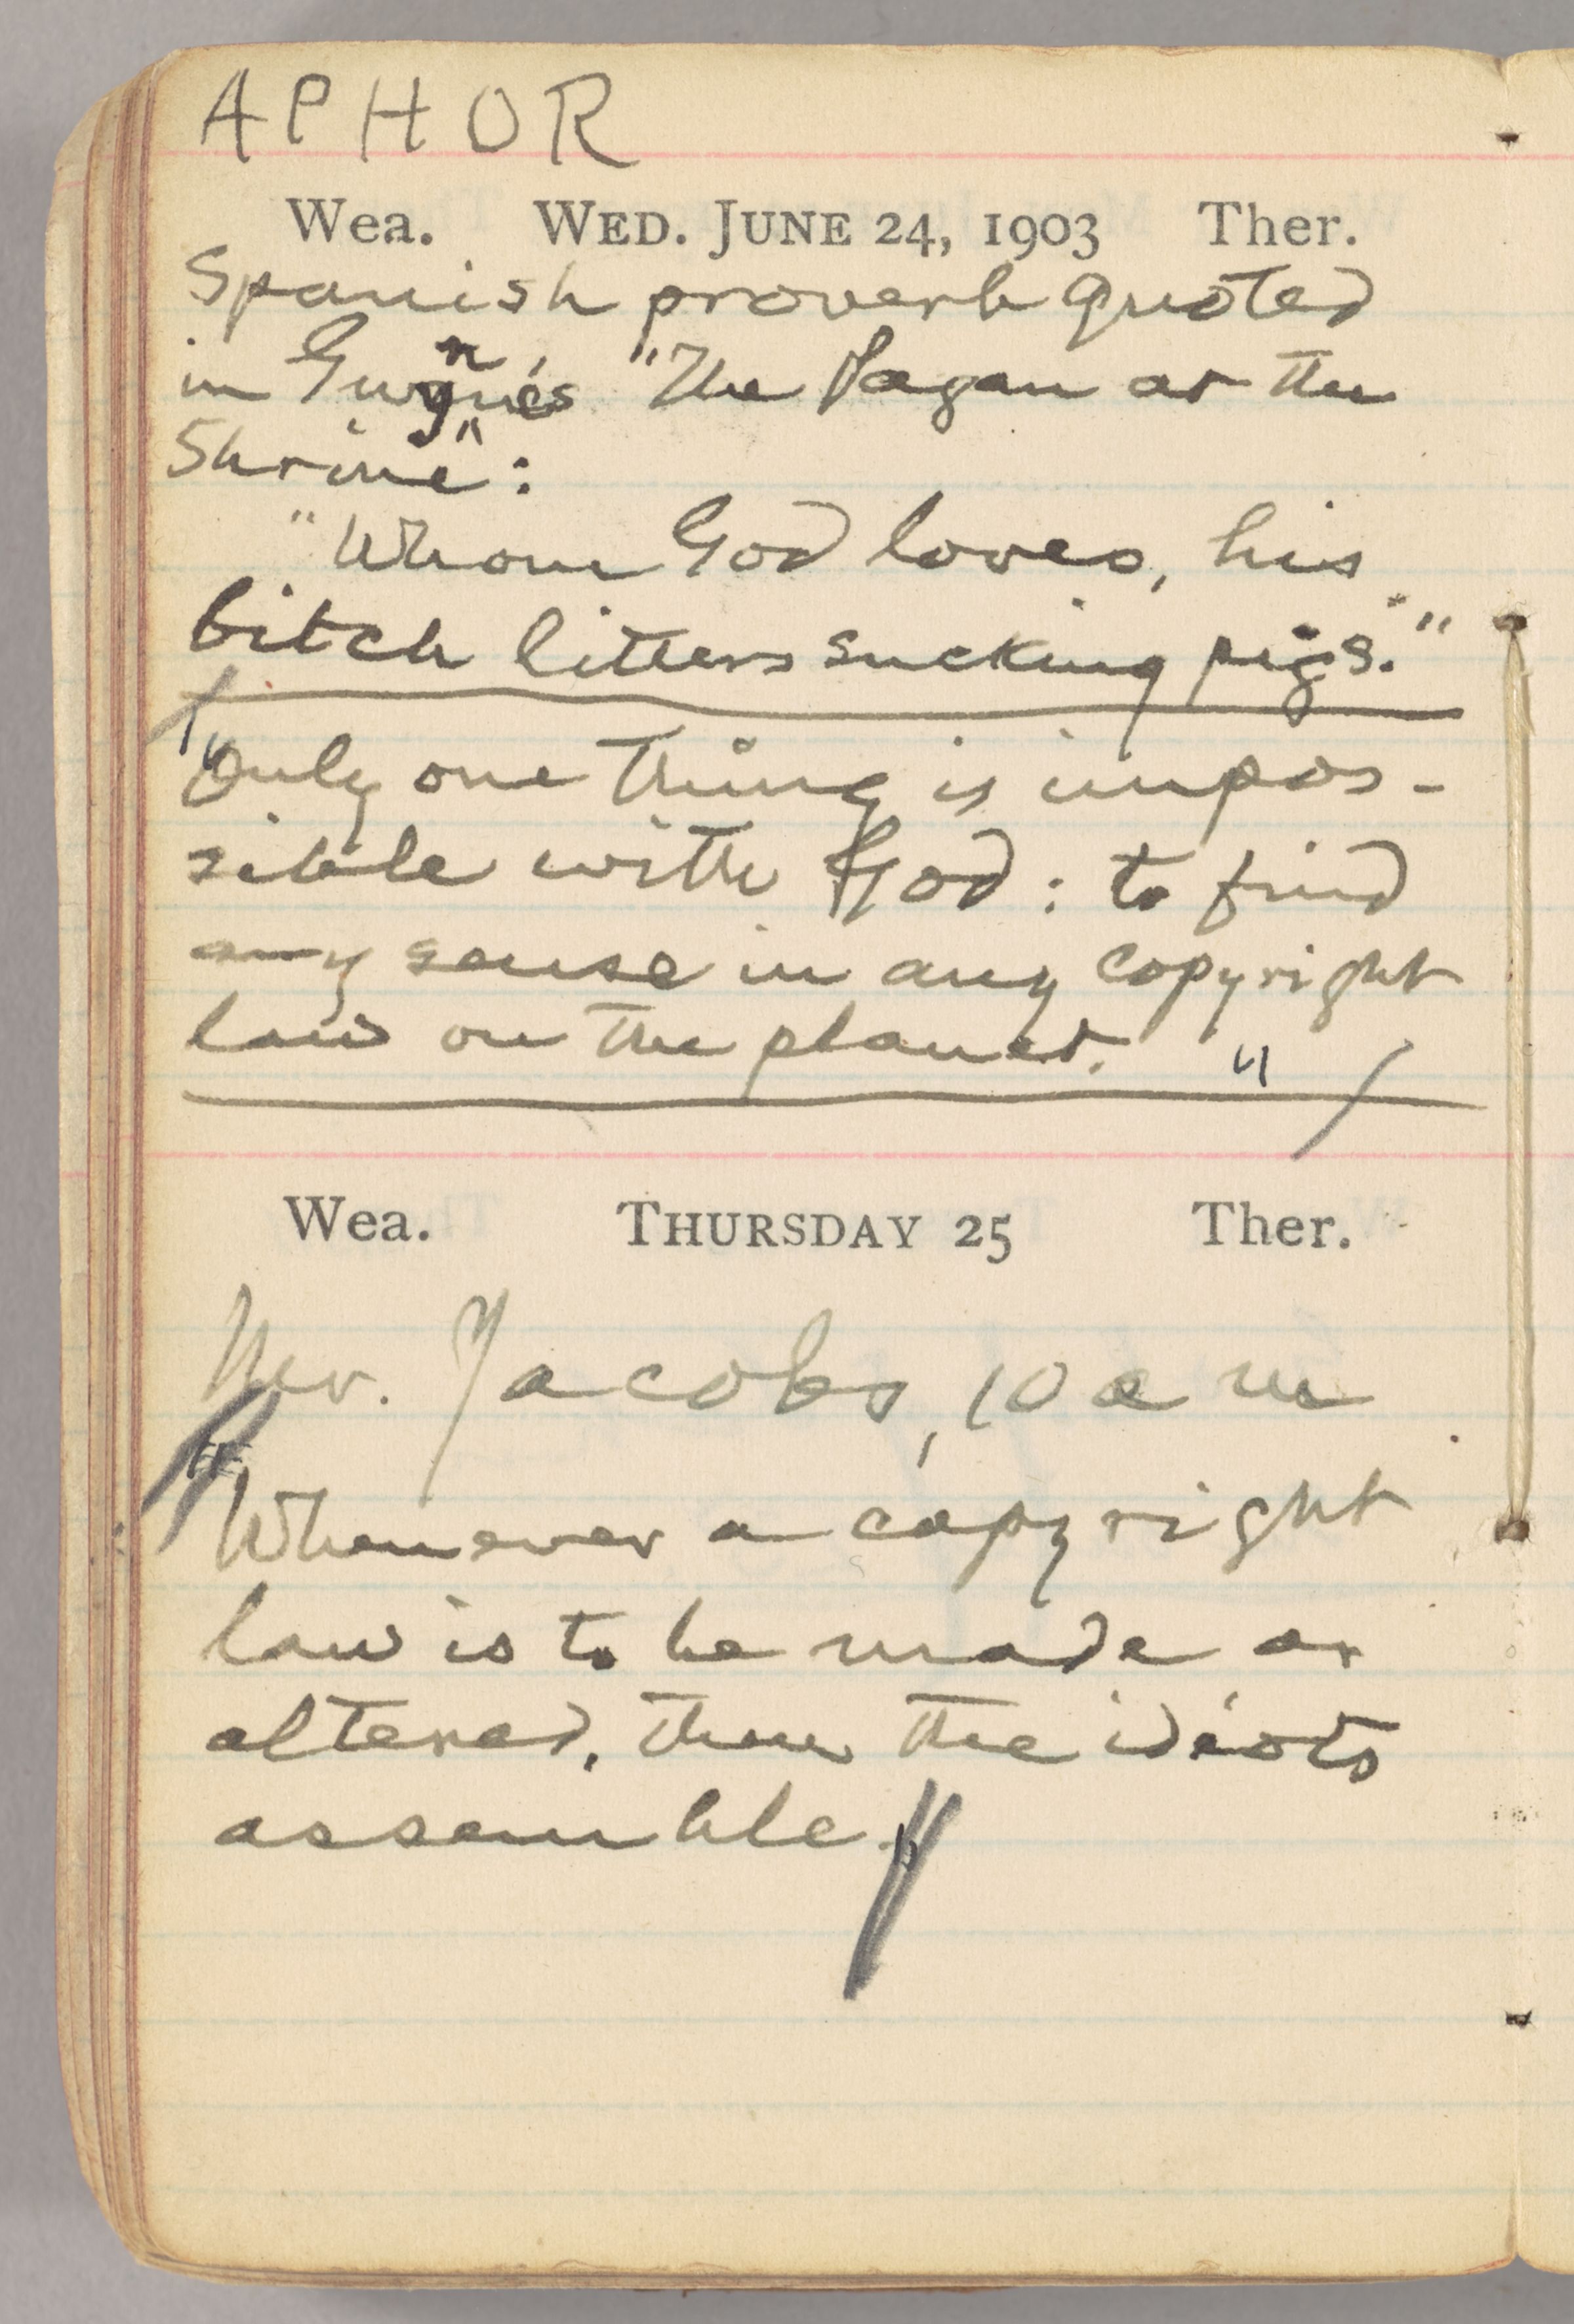 APHOR
Wea. WED. JUNE 24, 1903 Ther.
Spanish proverb quoted
in Gwynne's "The Pagan at the
Shrine":
"Whom God loves, his
bitch litters sucking pigs."
"Only one thing is impos-
sible with God: to find
any sense in any copyright
law on the planet."
Wea. THURSDAY 25 Ther.
Mr. Jacobs, 10 a m
"Whenever a copyright
law is to be made or
altered, then the idiots
assemble."